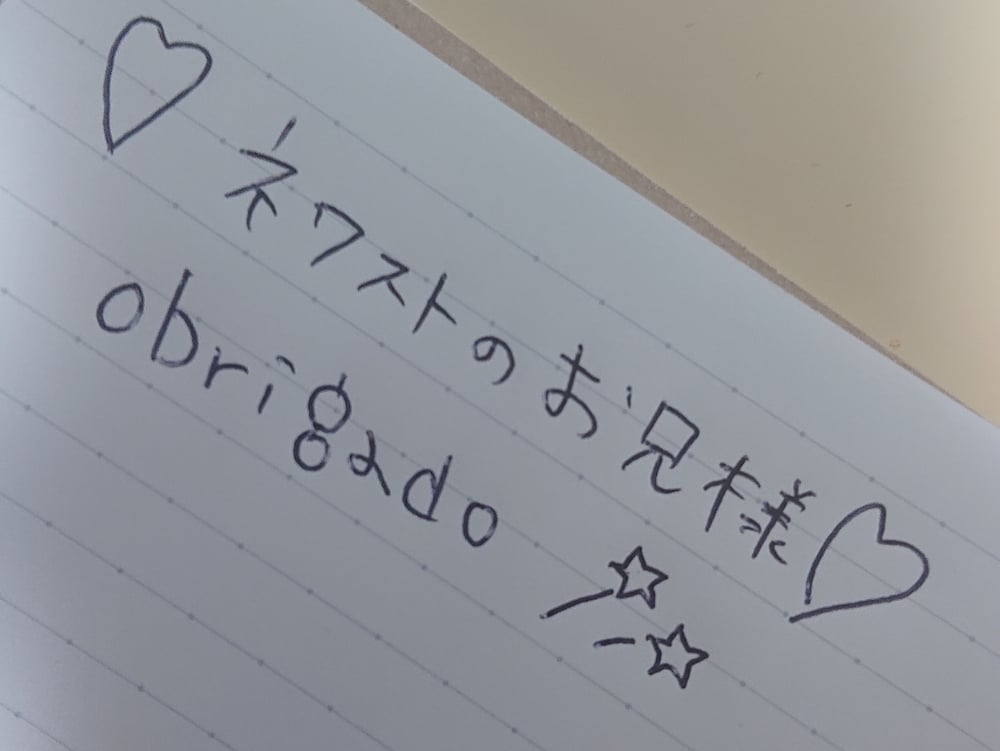 ♡ネクストのお兄様♡
obrigado ☆☆